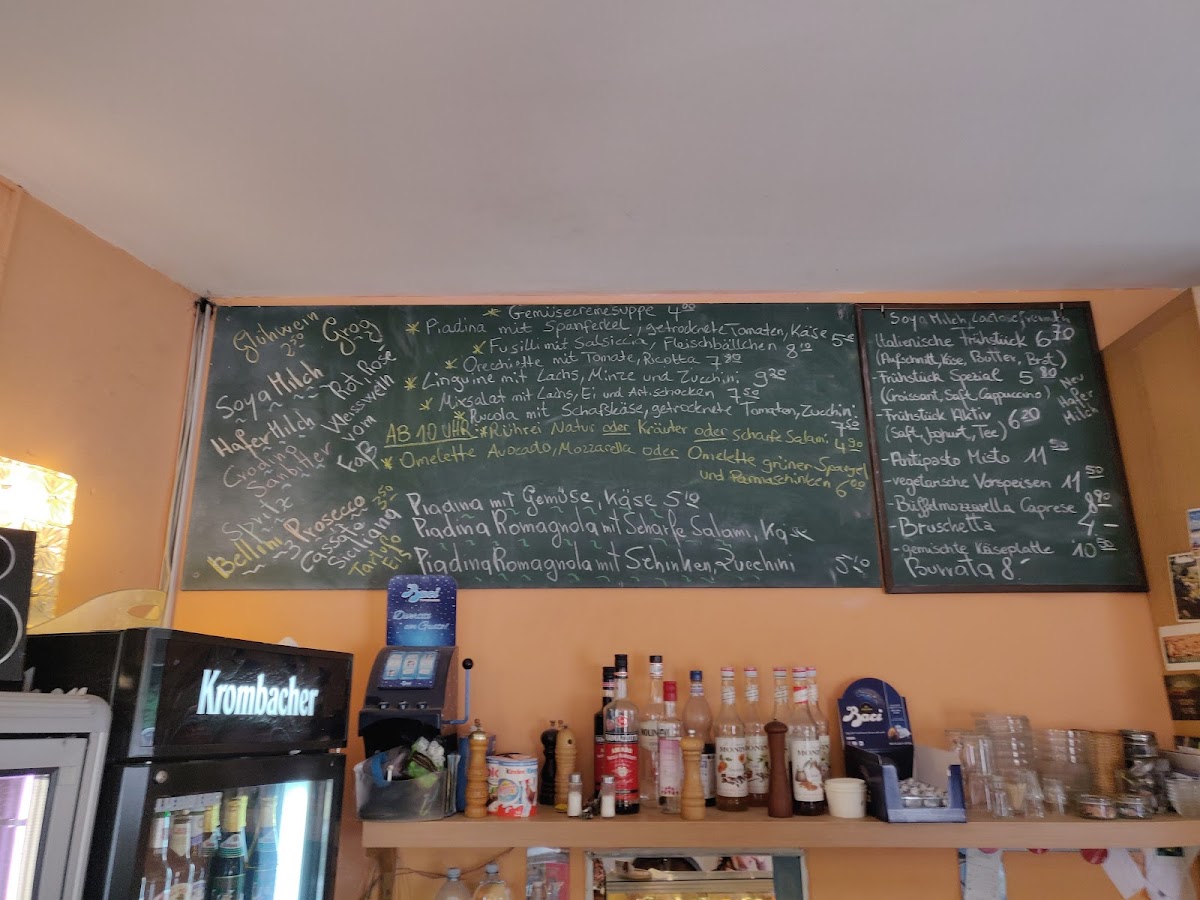 Glühwein
2,50
Grog
Soya Milch
Hafer Milch
Rot Rose
Weisswein
vom
Faß
Crodino
Sanbitter
Spritz
Bellini
Prosecco
3,50
Cassata
Siciliana
Tartufo
Eis
Gemüsecremesuppe 4,00
Piadina mit Spanferkel, getrocknete Tomaten, Käse
Fusilli mit Salsiccia, Fleischbällchen 8,10
Orecchiette mit Tomate, Ricotta 7,90
Linguine mit Lachs, Minze und Zucchini 9,20
Mixsalat mit Lachs, Ei und Artischocken 7,50
Rucola mit Schafskäse, getrocknete Tomaten, Zucchini
7,50
AB 10 UHR: Rührei Natur oder Kräuter oder scharfe Salami 4,90
Omelette Avocado, Mozzarella oder Omelette grüner Spargel
und Parmaschinken 6,00
Piadina mit Gemüse, Käse 5,10
Piadina Romagnola mit Scharfe Salami, Käse
Piadina Romagnola mit Schinken, Zucchini 5,40
Soya Milch, Lactosefreimilch
Italienische Frühstück 6,70
(Aufschnitt, Käse, Butter, Brot)
- Frühstück Spezial 5,80
(Croissant, Saft, Cappuccino)
- Frühstück Aktiv 6,20
(Saft, Joghurt, Tee)
Neu
Hafer
Milch
- Antipasto Misto 11,50
- vegetarische Vorspeisen 11,50
Büffelmozzarella Caprese 8,90
- Bruschetta 4,-
- gemischte Käseplatte 10,50
Burrata 8,-
Baci
Krombacher
Baci
Kinder
MONIN
MONIN
MONIN